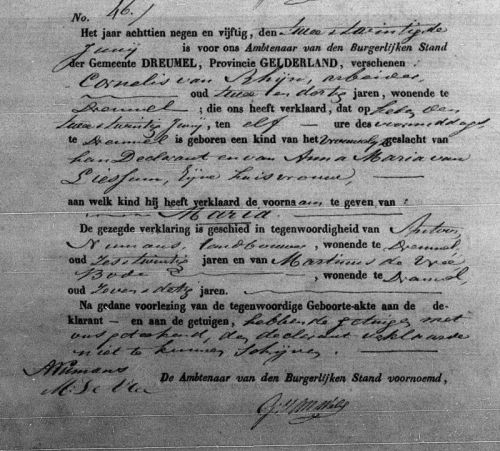 No. 46.
Het jaar achttien negen en vijftig, den twee & twintigste
Junij is voor ons Ambtenaar van den Burgerlijken Stand
der Gemeente DREUMEL, Provincie GELDERLAND, verschenen
Cornelis van Rhijn, arbeider,
oud twee en dertig jaren, wonende te
Dreumel; die ons heeft verklaard, dat op heden den
twee & twintig Junij, ten elf ure des voormiddags,
te Dreumel is geboren een kind van het Vrouwelijk geslacht van
hem Declarant en van Anna Maria van
zijne huisvrouw,
aan welk kind hij heeft verklaard de voornaam te geven van
Maria
De gezegde verklaring is geschied in tegenwoordigheid van
landbouwer, wonende te Dreumel
oud zes & twintig jaren en van Martinus de Vree
Bode, wonende te Dreumel
oud zeven & dertig jaren.
Na gedane voorlezing van de tegenwoordige Geboorte-akte aan de declarant — en aan de getuigen, hebbende getuigen met
ons geteekend, de declarant verklaarde
niet te kunnen schrijven.
M. de Vree
De Ambtenaar van den Burgerlijken Stand voornoemd,